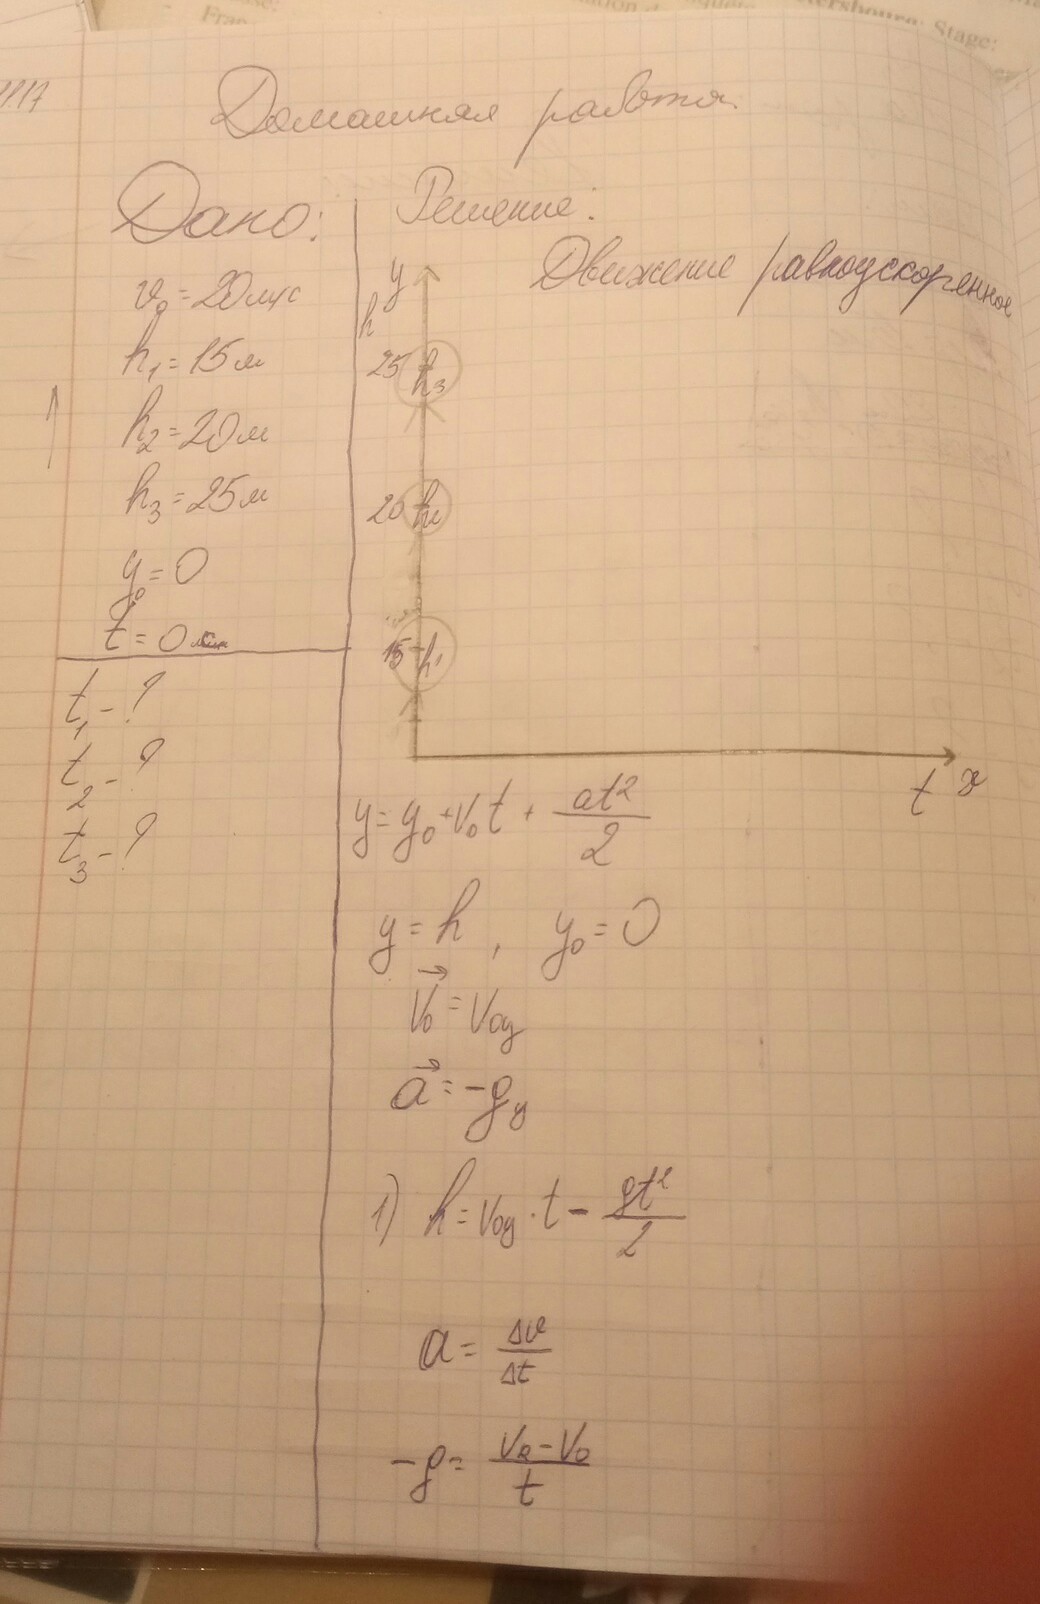 Stage:
1117
Домашняя работа.
Дано:
v₀ = 20 м/с
h₁ = 15 м
h₂ = 20 м
h₃ = 25 м
y₀ = 0
t = 0
t₁ - ?
t₂ - ?
t₃ - ?
Решение:
Движение равноускоренное
y
h
25 h₃
20 h₂
15 h₁
t x
y = y₀ + v₀ t + at²/2
y = h , y₀ = 0
v₀⃗ = v₀y
a⃗ = -gy
1) h = v₀y · t - gt²/2
a = Δv/Δt
-g = (v₂ - v₀)/t